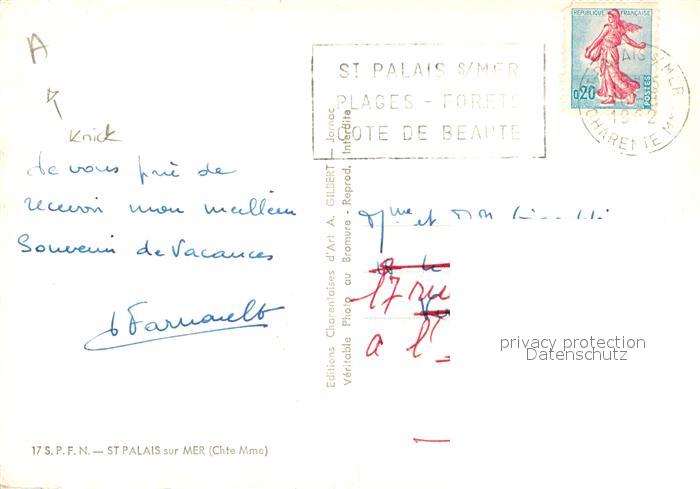 A
Knick
ST PALAIS S/MER
PLAGES - FORETS
COTE DE BEAUTE
REPUBLIQUE FRANÇAISE
0,20
POSTES
PALAIS S/MER
CHARENTE MME
Je vous prie de
recevoir mon meilleur
Souvenir de Vacances
Farnault
Editions Charentaises d'Art A. GILBERT - Jarnac
Véritable Photo au Bromure - Reprod. Interdite
Mme et
17 rue
a l'
privacy protection
Datenschutz
17 S. P. F. N. — ST PALAIS sur MER (Chte Mme)